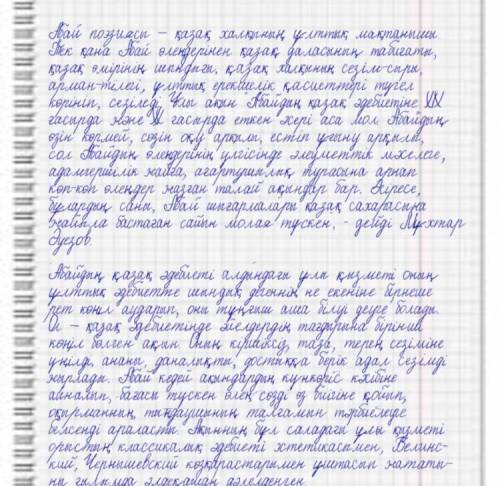 Абай поэзиясы – қазақ халқының ұлттық мақтанышы.
Тек қана Абай өлеңдерінен қазақ даласының табиғаты,
қазақ өмірінің шындығы, қазақ халқының сезім-сыры,
арман-тілегі, ұлттық ерекшелік қасиеттері түгел
көрініп, сезіледі. Ұлы ақын Абайдың қазақ әдебиетіне XIX
ғасырда және XX ғасырда еткен әсері аса мол Абайдың
өзін көрмей, сөзін оқу арқылы, естіп ұғыну арқылы,
сол Абайдың өлеңдерінің үлгісінде әлеуметтік мәселеге,
адамгершілік жайға, ағартушылық турасына арнап
көп-көп өлеңдер жазған талай ақындар бар. Әсіресе,
бұлардың саны, Абай шығармалары қазақ сахарасына
жайыла бастаған сайын молая түскен, - дейді Мұхтар
Әуезов.
Абайдың қазақ әдебиеті алдындағы ұлы қызметі оның
ұлттық әдебиетте шындық дегеннің не екеніне бірнеше
рет көңіл аударып, оны тұңғыш аша білуі деуге болады.
Ол – қазақ әдебиетінде әйелдердің тағдырына бірінші
көңіл бөлген ақын. Оның кіршіксіз, таза, терең сезіміне
үңілді, ананы, даналықты, достыққа берік адал сезімді
жырлады. Абай кедей ақындардың күнкөріс кәсібіне
айналып, бағасы түскен өлең сөзді өз биігіне қойып,
оқырманның, тыңдаушының талғамын тәрбиелеуге
белсенді араласты. Ақынның бұл саладағы ұлы қызметі
орыстың классикалық әдебиеті эстетикасымен, Белинс-
кий, Чернышевский көзқарастарымен ұштасып жататы-
ны ғылымда әлдеқашан дәлелденген.